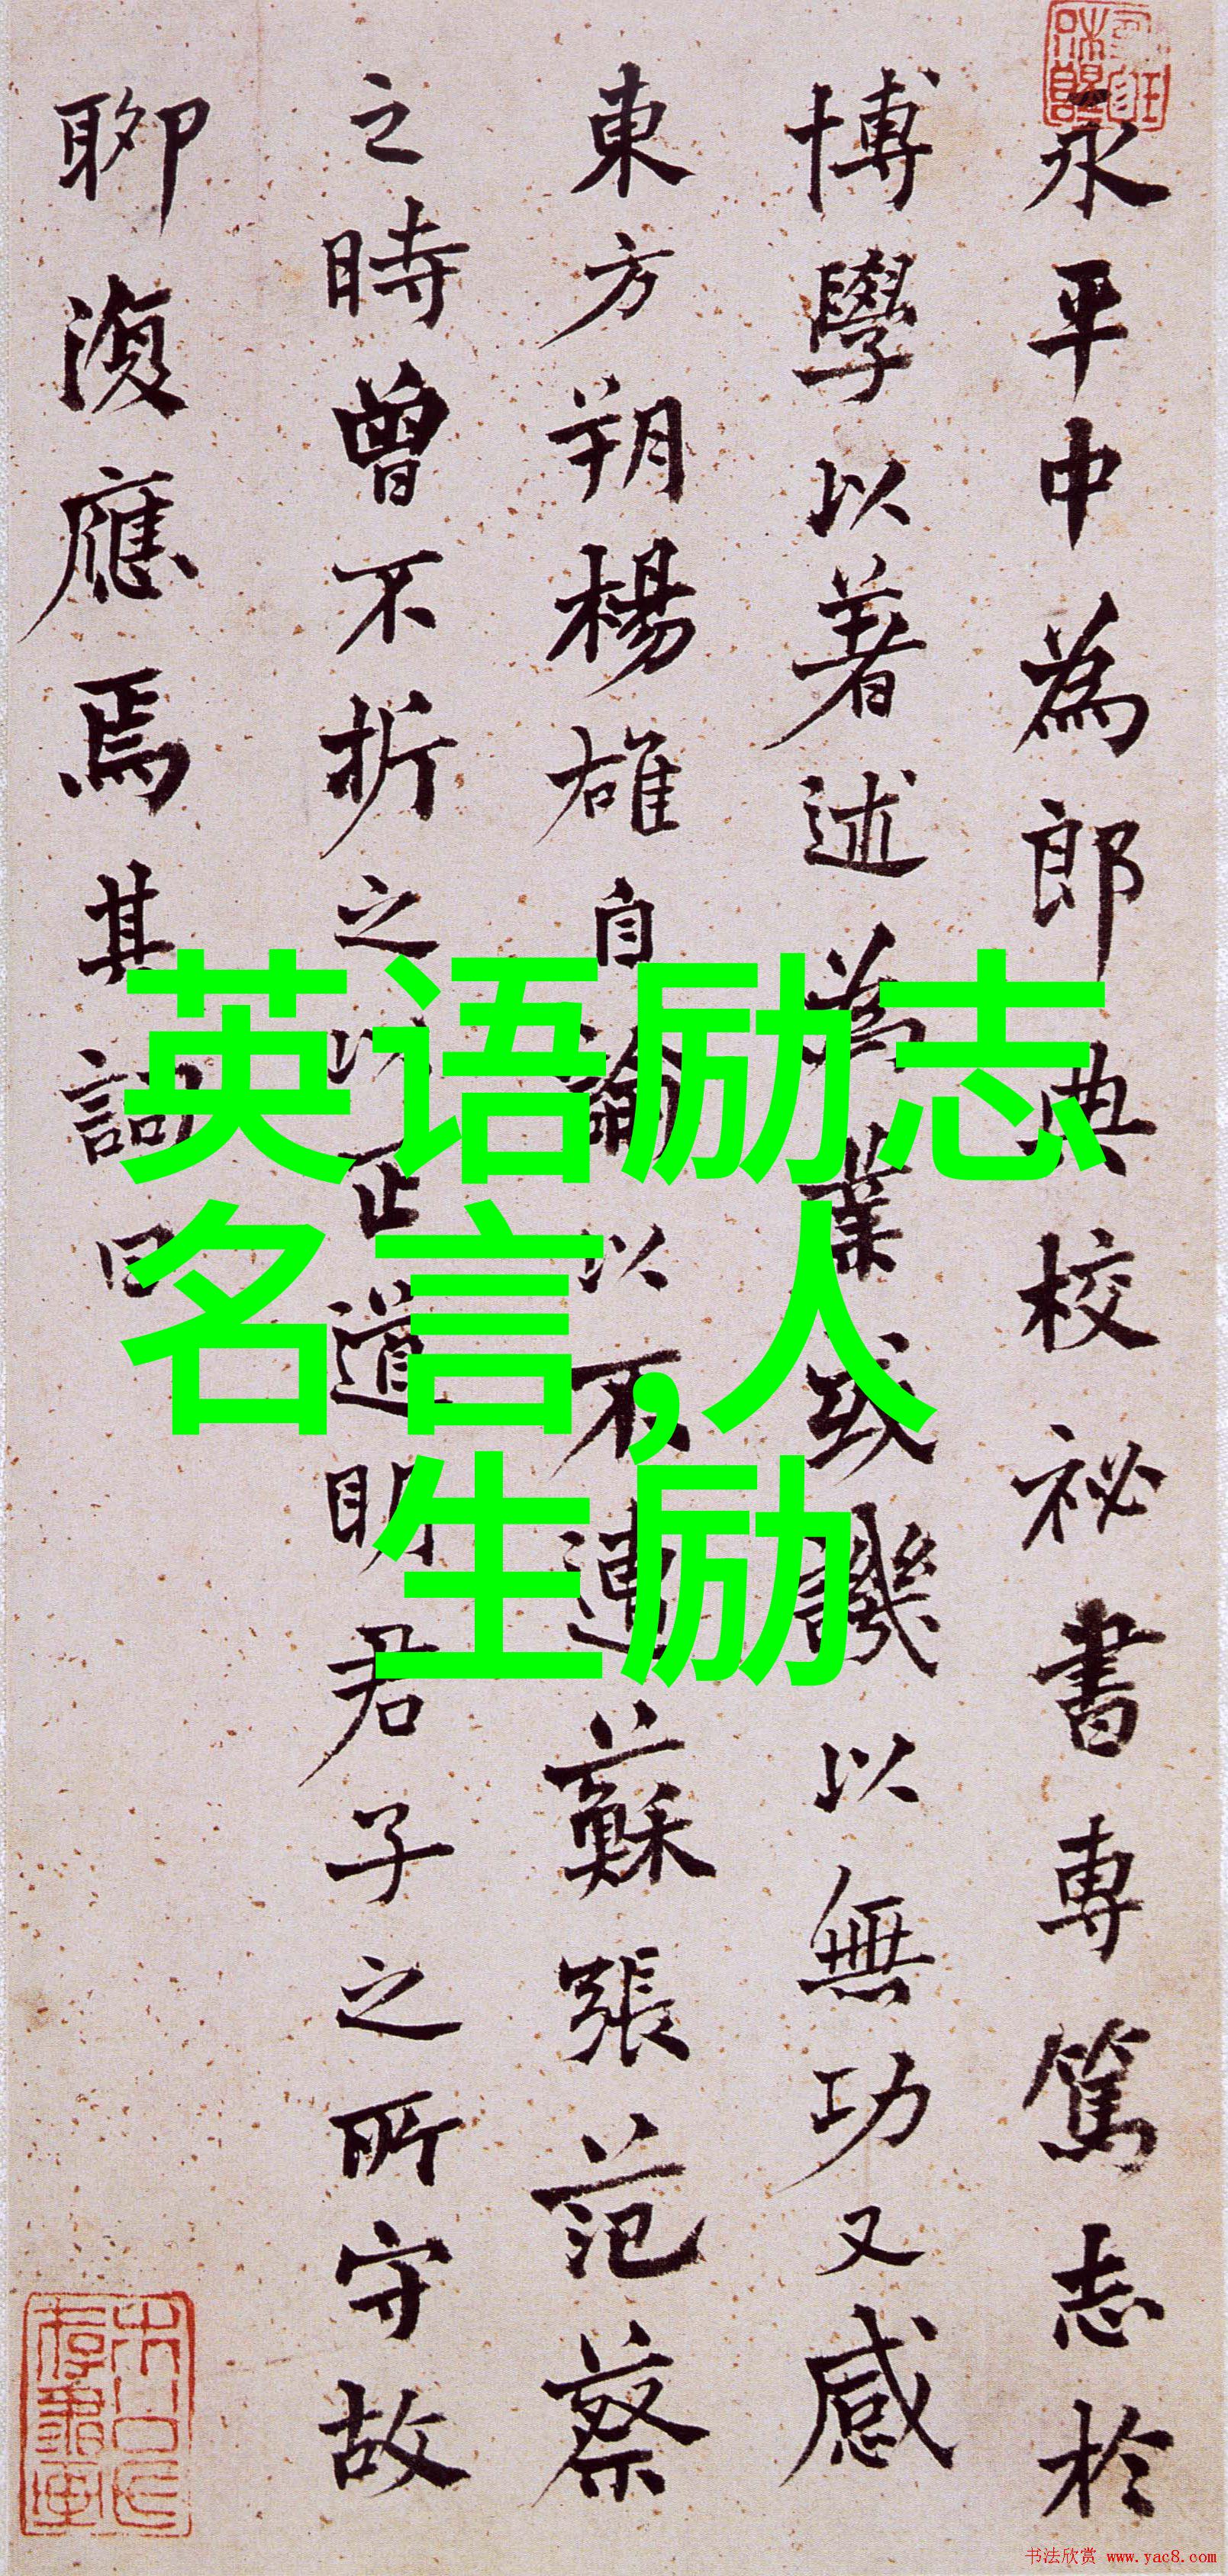 永平中為郎典校祕書專篤志於
博學以著述為業或譏以無功又感
東方朔楊雄自論以不遭蘇張范蔡
之時曾不折之以正道明君子之所守故
聊復應焉其詞曰
英语励志
名言,人
生励
书法欣赏 www.yac8.com